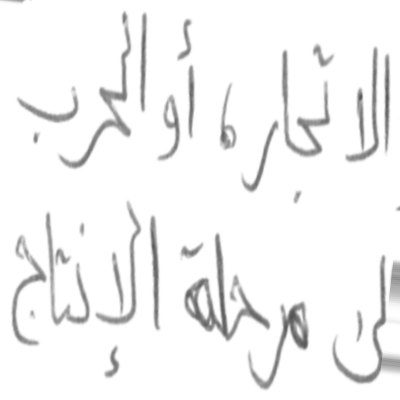 الاتجار، أو الحرب
لى مرحلة الإنتاج